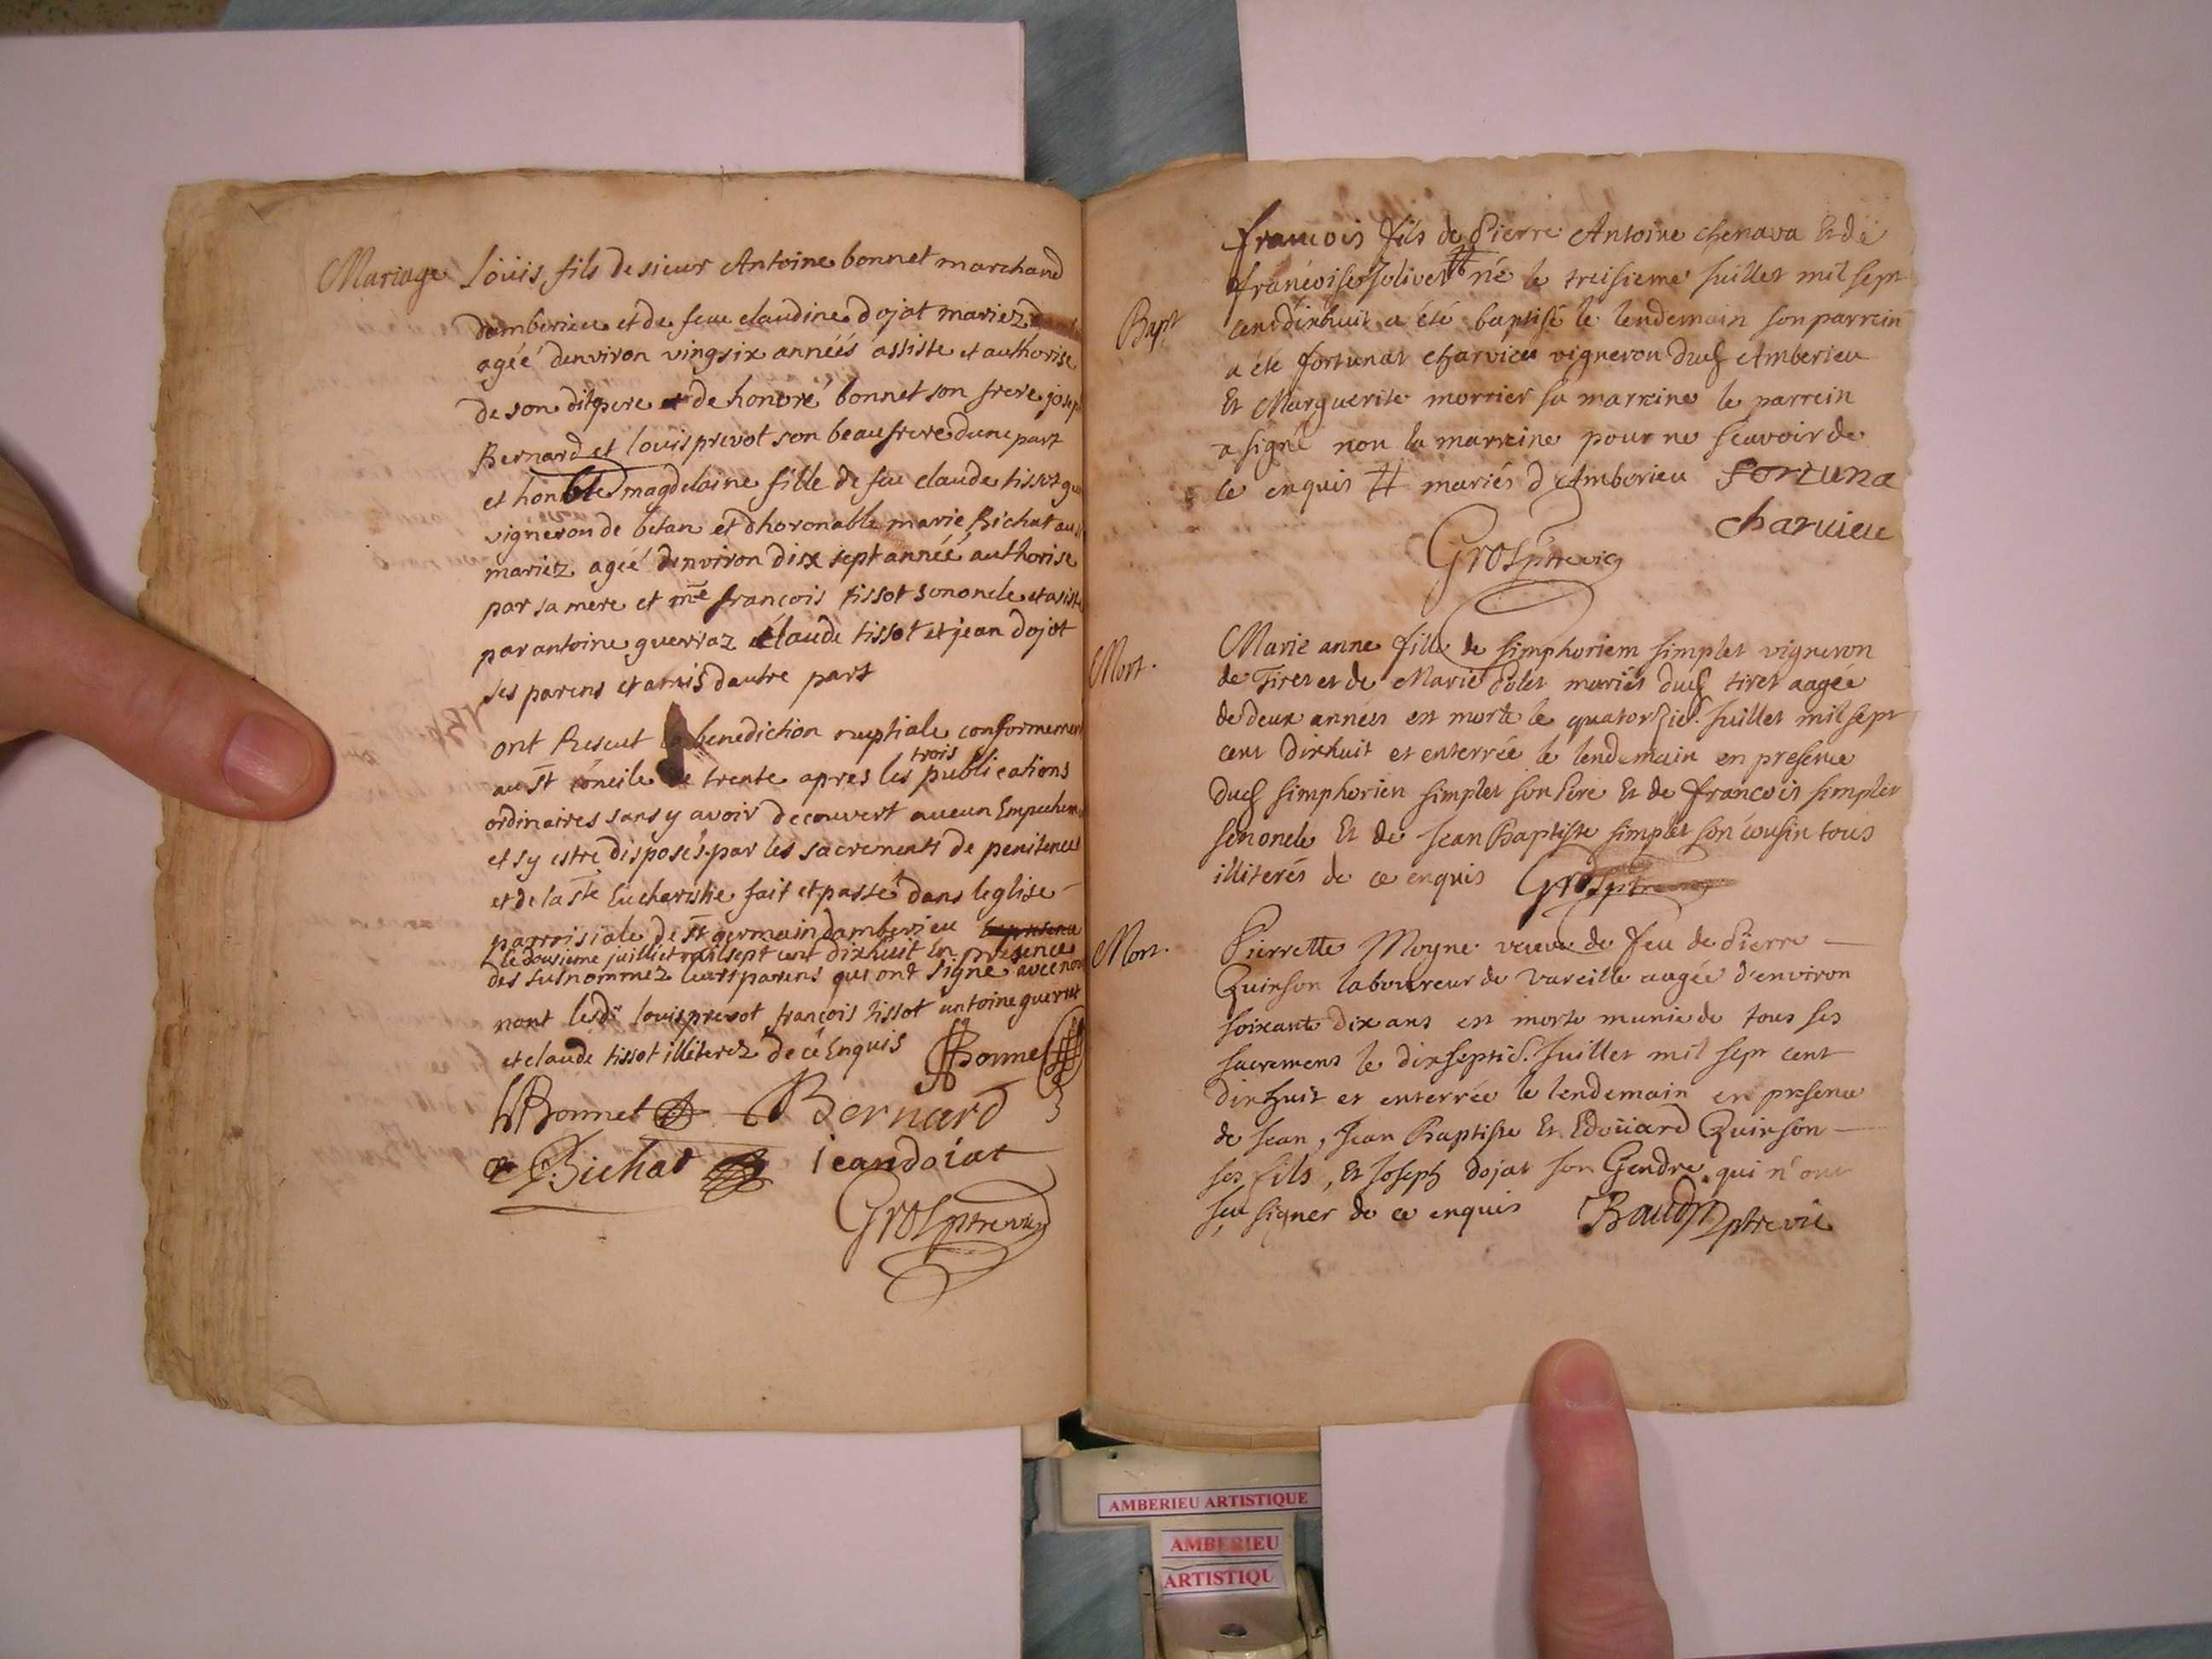 Mariage Loüis fils de sieur Antoine bonnet marchand
damberieu et de feue claudine dojat mariez
ageé denviron vingsix anneés assiste et authorise
de son dit pere et de honoré bonnet son frere joseph
Bernard et louis prevot son beaufrere dune part
et honble magdelaine fille de feu claude tissot
vigneron de betan et dhoronable marie Bichat
mariez ageé denviron dix sept anneé authorise
par sa mere et me françois tissot son oncle et asiste
par antoine guerraz claude tissot et jean dojat
ses parens et amis dautre part
ont Reseut la benediction nuptiale conformement
au st concile de trente apres les trois publications
ordinaires sans y avoir decouvert aucun Empechem
et sy estre disposés par les sacrements de penitence
et de la ste Eucharistie fait et passé dans leglise
parroisiale de st germain damberieu
le dousieme juilliet mil sept cent dixhuit En presence
des susnommez leurs parens qui ont signe avec nou
nont lesdts louis prevot françois tissot antoine guerraz
et claude tissot illiterez de cé Enquis Bonnet
hBonnet Bernard
Bichat jeandoiat
Gros ptre vic
Bapt
francois fils de Pierre Antoine chenava Et de
francoise Jolivet # né le treisieme Juillet mil sept
cent dixhuit a été baptisé le lendemain son parrein
a été fortunat charvieu vigneron dud Amberieu
Et Marguerite morrier sa marreine le parrein
a signé non la marreine pour ne scavoir de
ce enquis # mariés d'Amberieu Fortuna
charuieu
Gros ptre vic
Mort.
Marie anne fille de simphoriem simplet vigneron
de Tiret et de Marie Dolet mariés dud tiret aagée
de deux années est morte le quatorzie. Juillet mil sept
cent dixhuit et enterrée le lendemain en presence
dud simphorien simplet son Pere Et de francois simplet
son oncle Et de Jean Baptiste simplet son cousin tous
illiterés de ce enquis Gros ptre vic
Mort.
Pierrette Moyne veuve de feu de Pierre
Quinson laboureur de Vareille aagée d'environ
soixante dix ans est morte munie de tous ses
sacremens le dixseptie. Juillet mil sept cent
dixhuit et enterrée le lendemain en presence
de Jean, Jean Baptiste Et Edoüard Quinson
ses fils, Et Joseph dojat son Gendre qui n'ont
sçu signer de ce enquis Baudin ptre vic
AMBERIEU ARTISTIQUE
AMBERIEU
ARTISTIQU